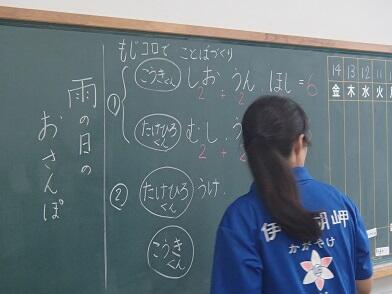 もじコロで ことばづくり
雨の日の
おさんぽ
①
こうきくん
しお、うん、ほし=6
2 + 2
たけひろくん
むし、う
2 + 2
②
たけひろくん
うけ、
こうきくん
14 13 12 11
金 木 水 火
岬
かがやけ